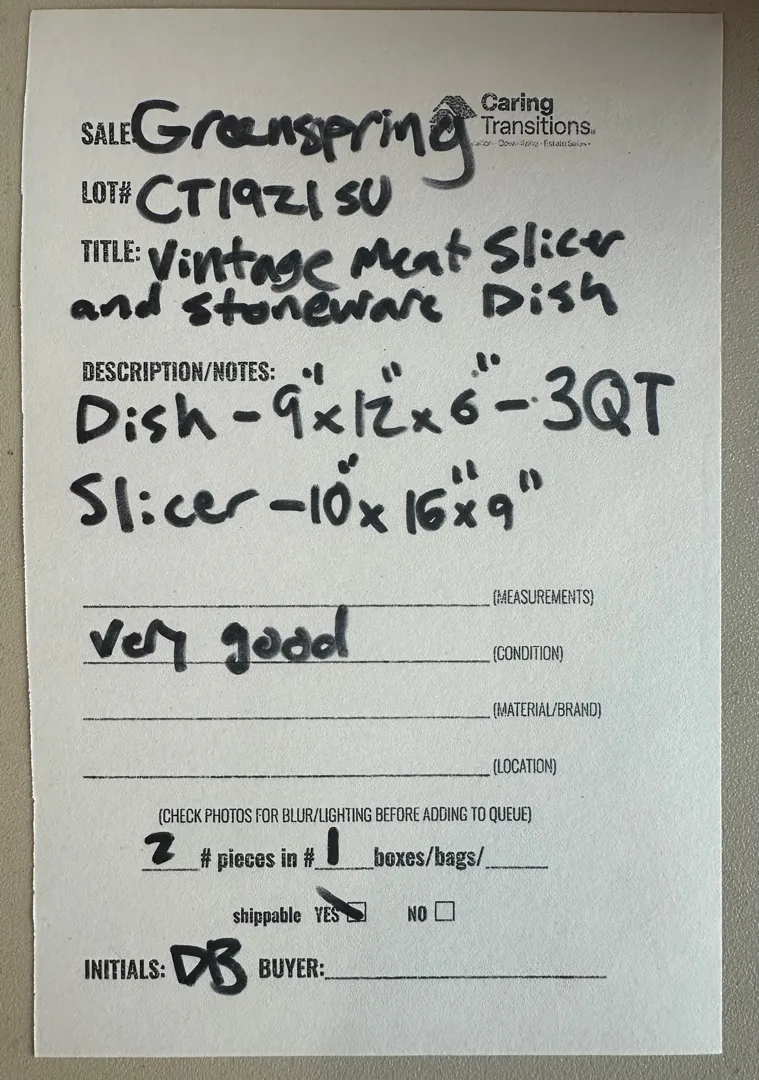 Caring
Transitions
SALE: Greenspring
LOT# CT1921SU
TITLE: Vintage Meat Slicer
and Stoneware Dish
DESCRIPTION/NOTES:
Dish - 9" x 12" x 6" - 3QT
Slicer - 10" x 16" x 9"
(MEASUREMENTS)
very good (CONDITION)
(MATERIAL/BRAND)
(LOCATION)
(CHECK PHOTOS FOR BLUR/LIGHTING BEFORE ADDING TO QUEUE)
2 # pieces in # 1 boxes/bags/
shippable YES NO
INITIALS: DB BUYER: